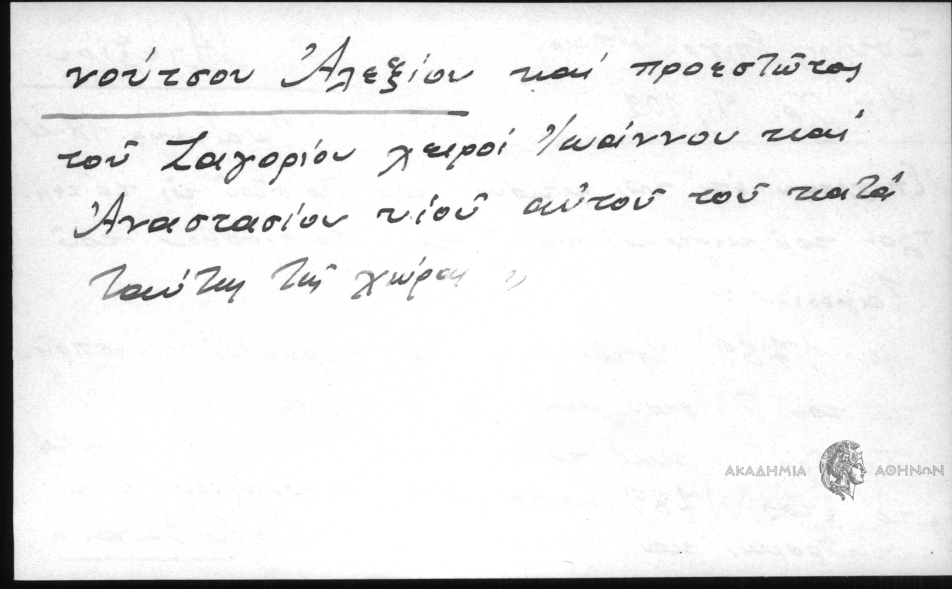 νούτσου Ἀλεξίου καί προεστῶτος
τοῦ Ζαγορίου χειρί Ἰωάννου καί
Ἀναστασίου υἱοῦ αὐτοῦ τοῦ κατά
ταύτης τῆς χώρας »
ΑΚΑΔΗΜΙΑ ΑΘΗΝΩΝ